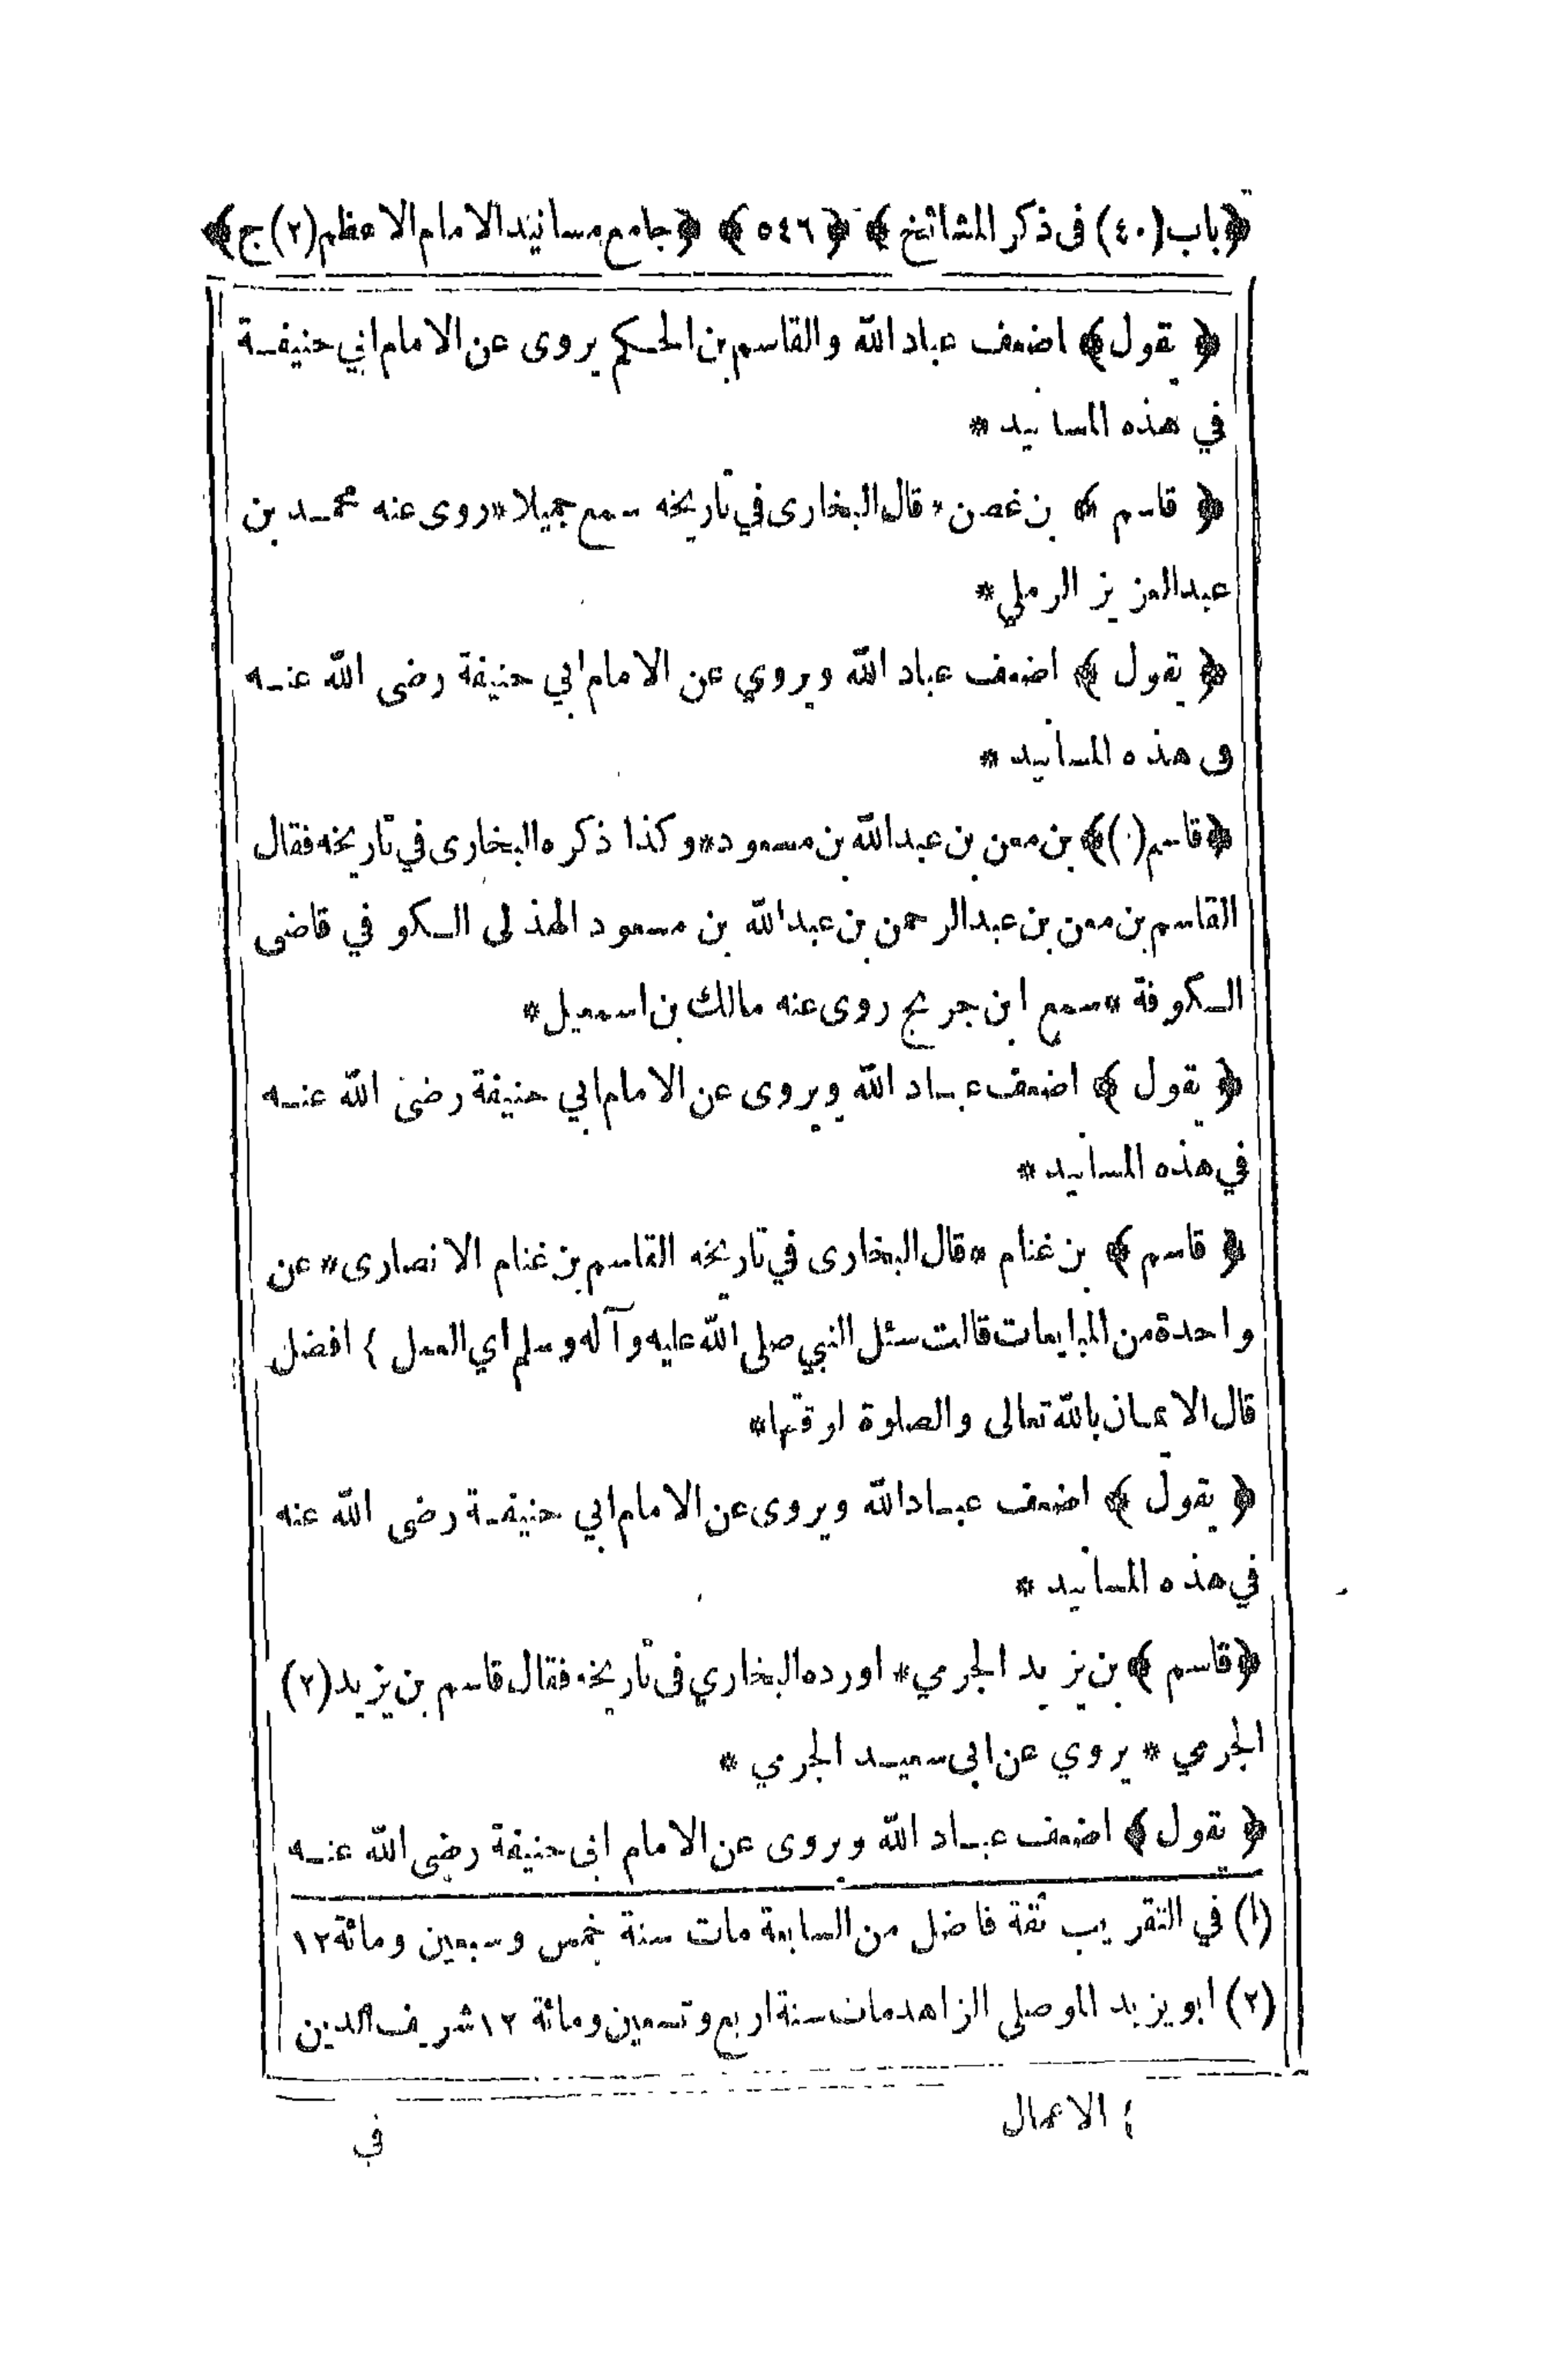 ﴿باب(٤٠) فى ذكر المشائخ﴾ ﴿٥٤٦﴾ ﴿جامع مسانيد الامام الاعظم(٢)ج﴾
﴿ يقول﴾ اضعف عباد الله والقاسم بن الحكم يروى عن الامام ابي حنيفة
في هذه المسانيد *
﴿ قاسم ﴾ بن غصن* قال البخارى في تاريخه سمع جميلا* روى عنه محمد بن
عبدالعزيز الرملي*
﴿ يقول ﴾ اضعف عباد الله ويروي عن الامام ابي حنيفة رضى الله عنه
فى هذه المسانيد *
﴿قاسم(١)﴾ بن معن بن عبدالله بن مسعود* وكذا ذكره البخارى في تاريخه فقال
القاسم بن معن بن عبدالرحمن بن عبدالله بن مسعود الهذلى الكوفي قاضى
الكوفة *سمع ابن جريج روى عنه مالك بن اسمعيل*
﴿ يقول ﴾ اضعف عباد الله ويروى عن الامام ابي حنيفة رضى الله عنه
في هذه المسانيد *
﴿ قاسم ﴾ بن غنام *قال البخارى في تاريخه القاسم بن غنام الانصارى* عن
واحدة من المبايعات قالت سئل النبي صلى الله عليه وآله وسلم اي العمل { افضل
قال الايمان بالله تعالى والصلوة لوقتها*
﴿ يقول ﴾ اضعف عباد الله ويروى عن الامام ابي حنيفة رضى الله عنه
في هذه المسانيد *
﴿قاسم ﴾ بن يزيد الجرمي* اورده البخاري فى تاريخه فقال قاسم بن يزيد (٢)
الجرمي * يروي عن ابى سعيد الجرمي *
﴿ يقول ﴾ اضعف عباد الله ويروى عن الامام ابى حنيفة رضى الله عنه
(١) في التقريب ثقة فاضل من السابعة مات سنة خمس وسبعين ومائة ١٢
(٢) ابو يزيد الموصلى الزاهد مات سنة اربع وتسعين ومائة ١٢ شريف الدين
{ الاعمال
في